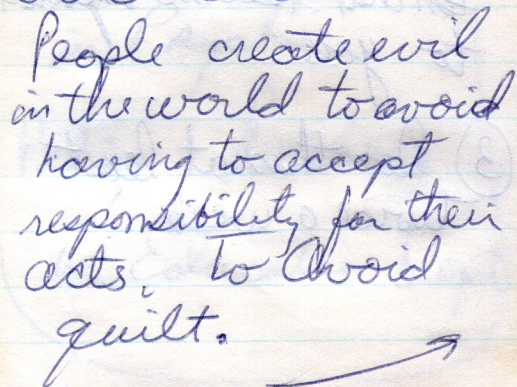 People create evil
in the world to avoid
having to accept
responsibility for their
acts. To Avoid
guilt.